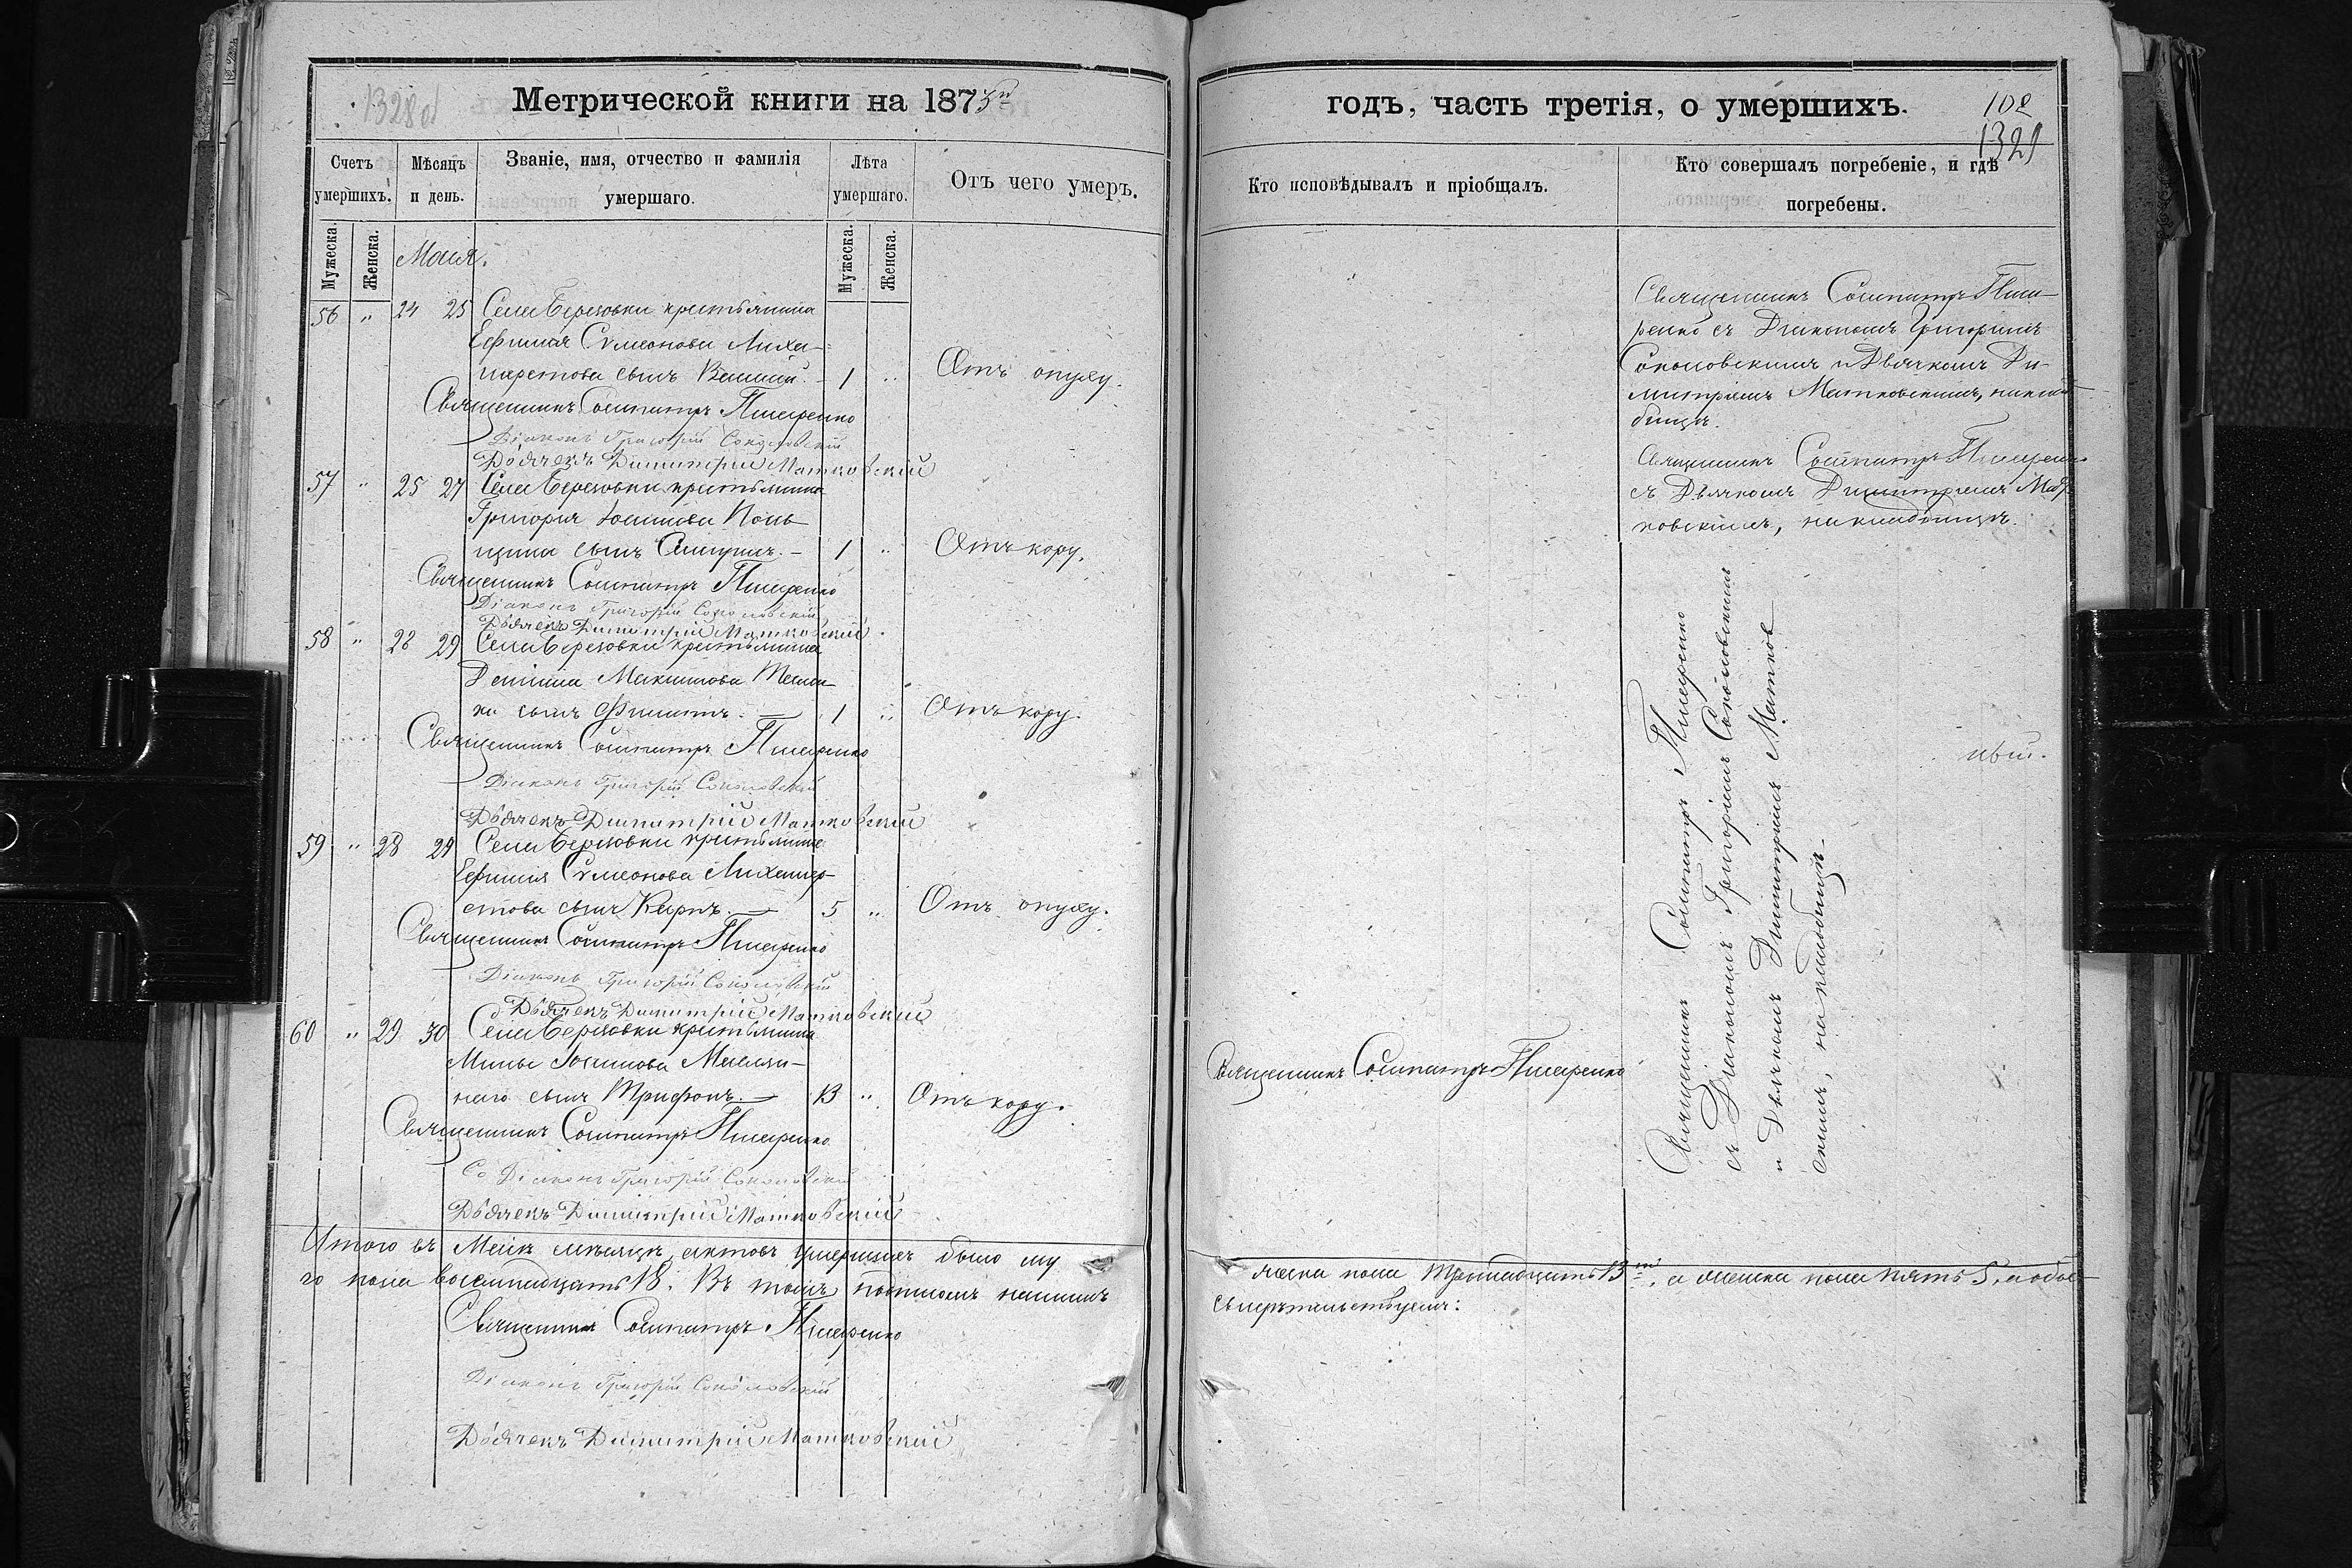 1328 об
Метрической книги на 1873й
годъ, часть третія, о умершихъ.
102
1329
Счетъ умершихъ.
Мѣсяцъ и день.
Званіе, имя, отчество и фамилія умершаго.
Лѣта умершаго.
Отъ чего умеръ.
Кто исповѣдывалъ и пріобщалъ.
Кто совершалъ погребеніе, и гдѣ погребены.
Мужеска.
Женска.
Мужеска.
Женска.
Маія.
56 " 24 25 Села Березовки крестьянина
Ефимія Сѵмеонова
сынъ 1 " Отъ опуху.
Священникъ Сосипатръ Писаренко
Діаконъ Григорій Соколовскій
Дьячекъ Димитрій Матковскій
57 " 25 27 Села Березовки крестьянина
Григорія
сынъ 1 " Отъ кору.
Священникъ Сосипатръ Писаренко
Діаконъ Григорій Соколовскій
Дьячекъ Димитрій Матковскій
58 " 28 29 Села Березовки крестьянина
Максимова
сынъ 1 " Отъ кору.
Священникъ Сосипатръ Писаренко
Діаконъ Григорій Соколовскій
Дьячекъ Димитрій Матковскій
59 " 28 29 Села Березовки крестьянина
Ефимія Сѵмеонова
стова сынъ Карпъ. 5 " Отъ опуху.
Священникъ Сосипатръ Писаренко
Діаконъ Григорій Соколовскій
Дьячекъ Димитрій Матковскій
60 " 29 30 Села Березовки крестьянина
Мины
сынъ Трифонъ. 13 " Отъ кору.
Священникъ Сосипатръ Писаренко
Діаконъ Григорій Соколовскій
Дьячекъ Димитрій Матковскій
Итого въ Маіѣ мѣсяцѣ актовъ умершихъ было му
жеска пола тринадцать 13ть, а женска пола пять 5, а обое-
го пола восемнадцать 18. Въ томъ подписомъ нашимъ
свидѣтельствуемъ:
Священникъ Сосипатръ Писаренко
Діаконъ Григорій Соколовскій
Дьячекъ Димитрій Матковскій
Священникъ Сосипатръ Писа-
ренко съ Діакономъ Григоріемъ
Соколовскимъ и Дьячкомъ Ди-
митріемъ Матковскимъ, на клад-
бищѣ.
Священникъ Сосипатръ Писаренко
съ Дьячкомъ Димитріемъ Мат-
ковскимъ, на кладбищѣ.
Священникъ Сосипатръ Писаренко
съ Діакономъ Григоріемъ Соколовскимъ
и Дьячкомъ Димитріемъ Матков
скимъ, на кладбищѣ.
Священникъ Сосипатръ Писаренко